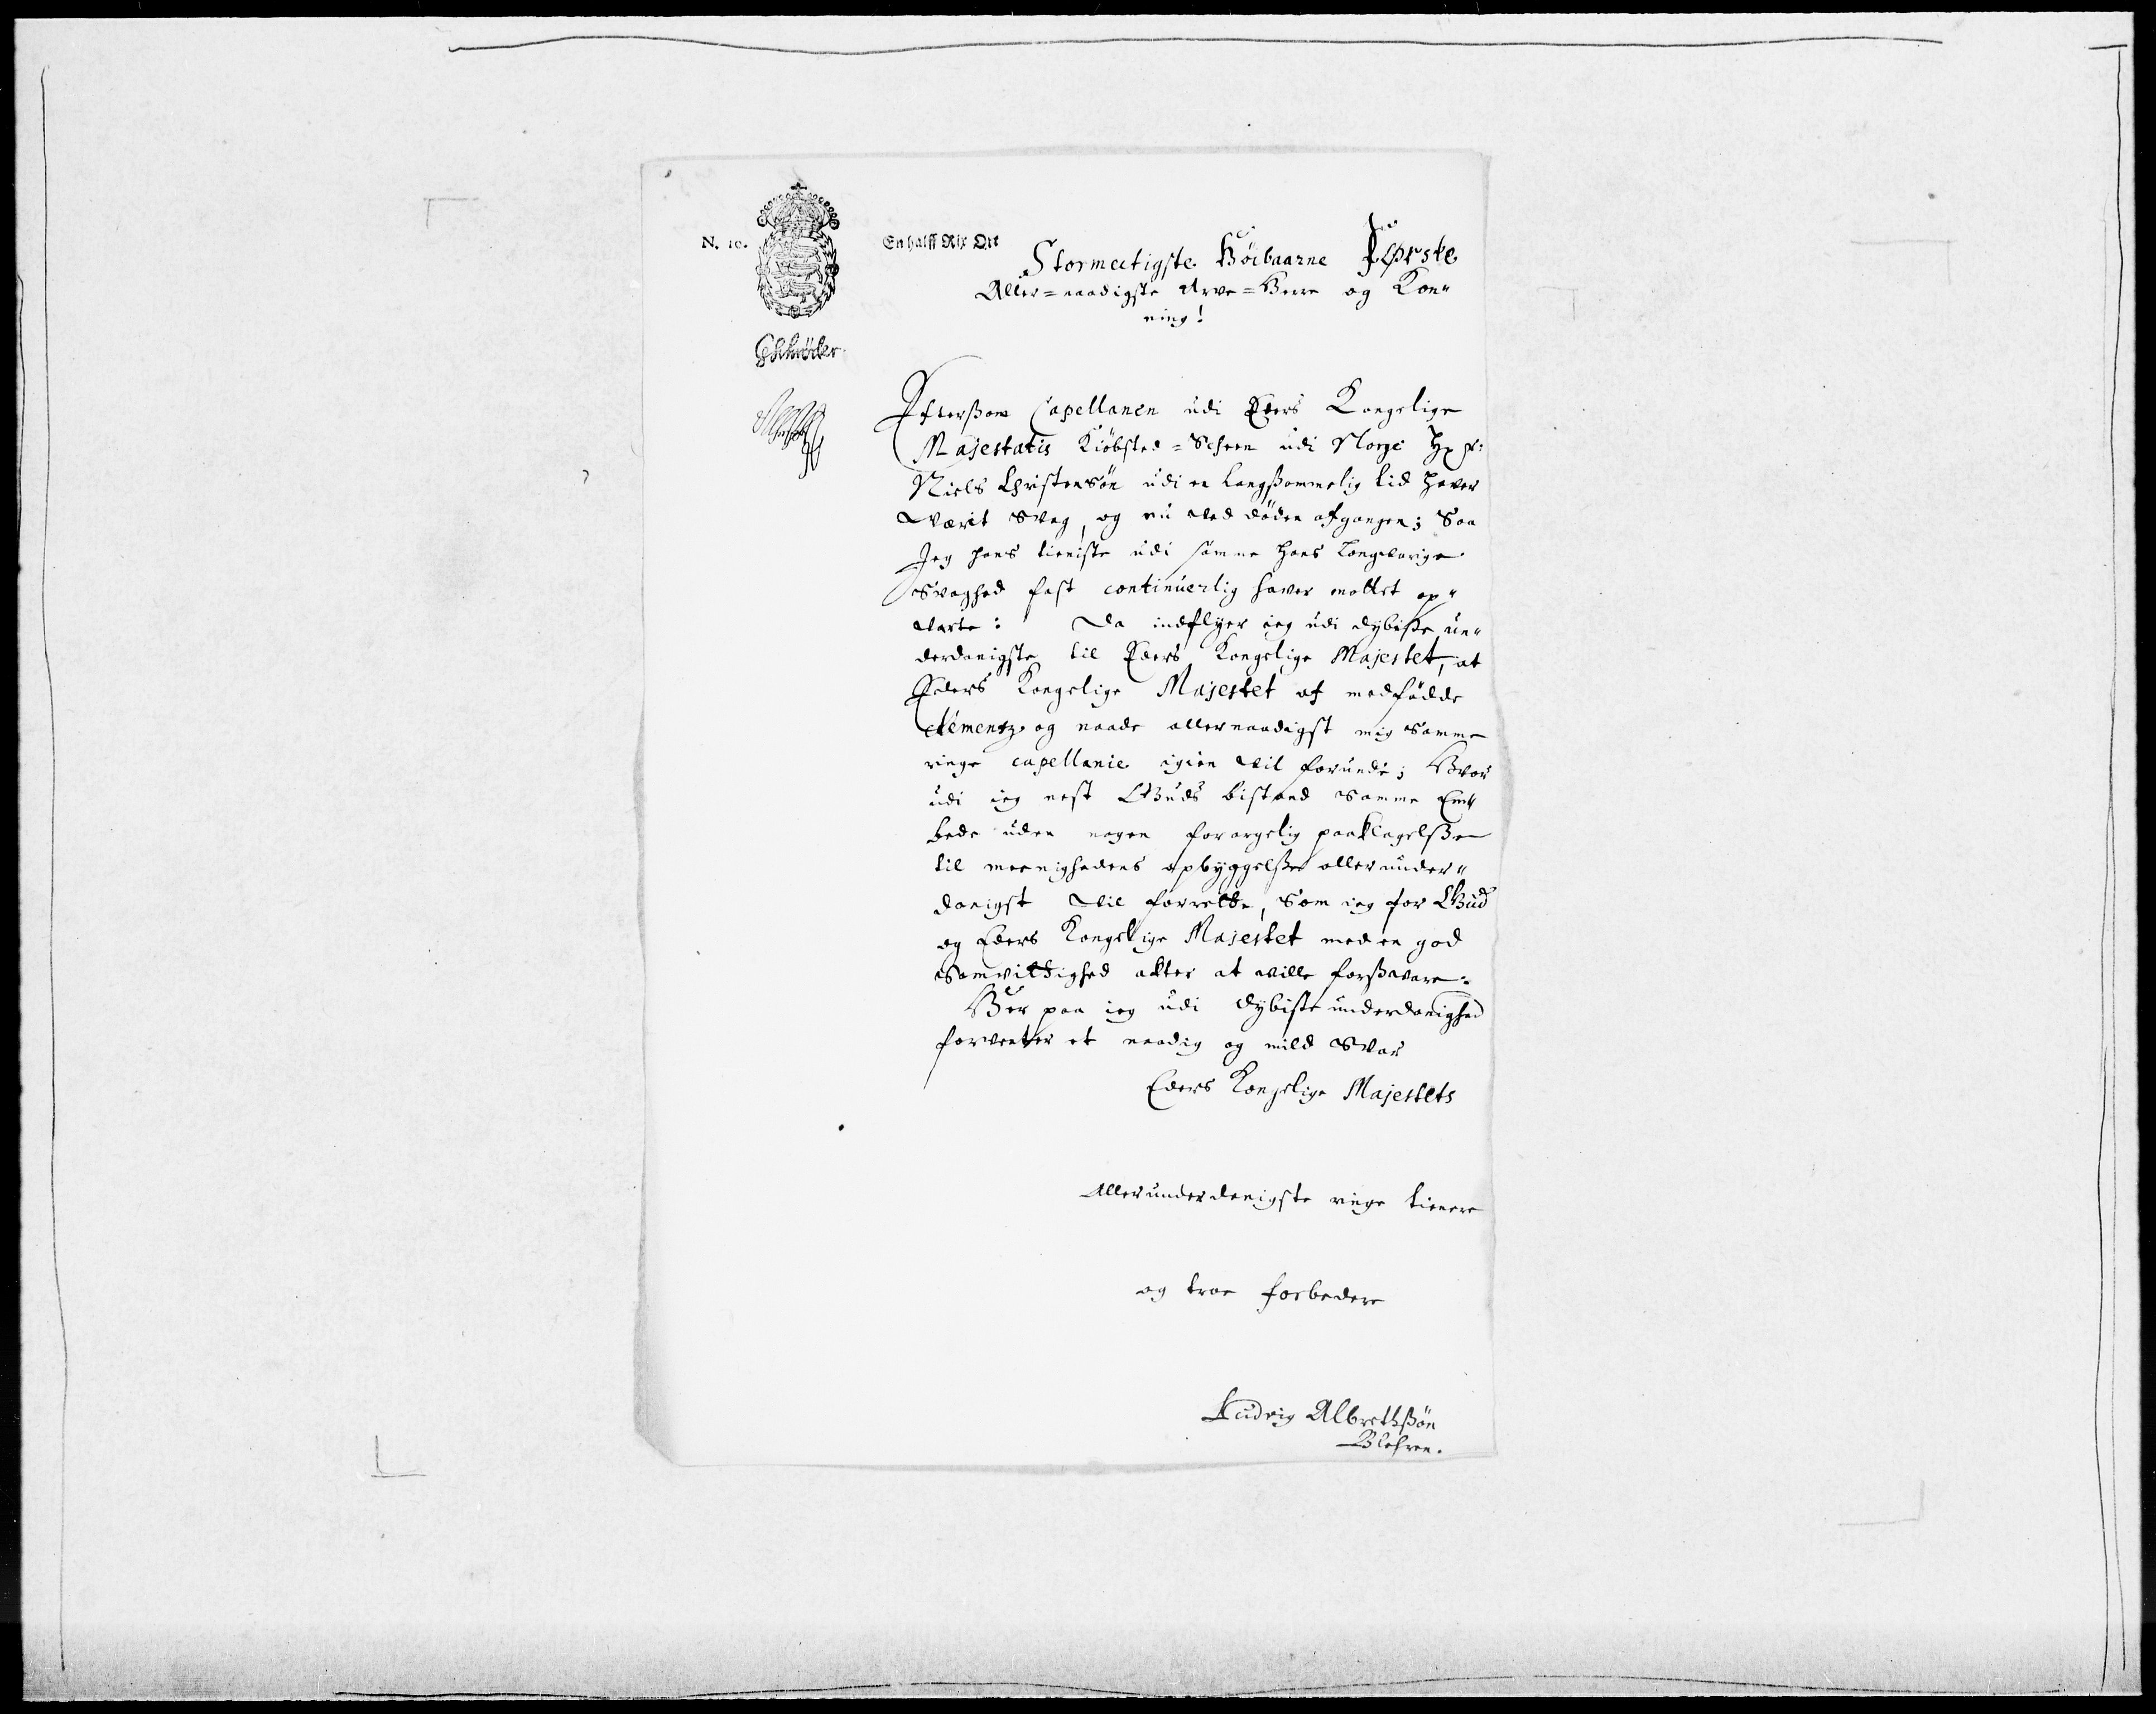 N. 10.
En halff Rix Ort
Stormectigste Höibaarne Förste
Aller=naadigste Arve=Herre og Kon"
ning!
Schröder
Efterßom Capellanen udi Eders Kongelige
Majestatis Kiöbsted=Scheen udi Norge Her
Niels Christensön udi en langßommelig tid hafver
værit svag, og nu ved döden afgangen; Saa
Jeg hans tieniste udi samme hans langvarige
svaghed fast continuerlig hafver mottet op"
varte: Da indflyer ieg udi dybiste un"
derdanigste til Eders Kongelige Majestet, at
Eders Kongelige Majestet af medfödde
clementz og naade allernaadigst mig samme
ringe capellanie igien vil forunde; Hvor
udi ieg nest Guds bistand samme Em"
bede uden nogen forargelig paaklagelße
til meenighedens opbyggelße allerunder"
danigst vil forrette, som ieg for Gud
og Eders Kongelige Majestet med en god
samvittighed akter at ville forßvare.
Her paa ieg udi dybiste underdanighed
forventer et naadig og mild Svar
Eders Kongelige Majestets
Allerunderdanigste ringe tienere
og troe forbedere
Ludvig Albrethßön
Blehren.